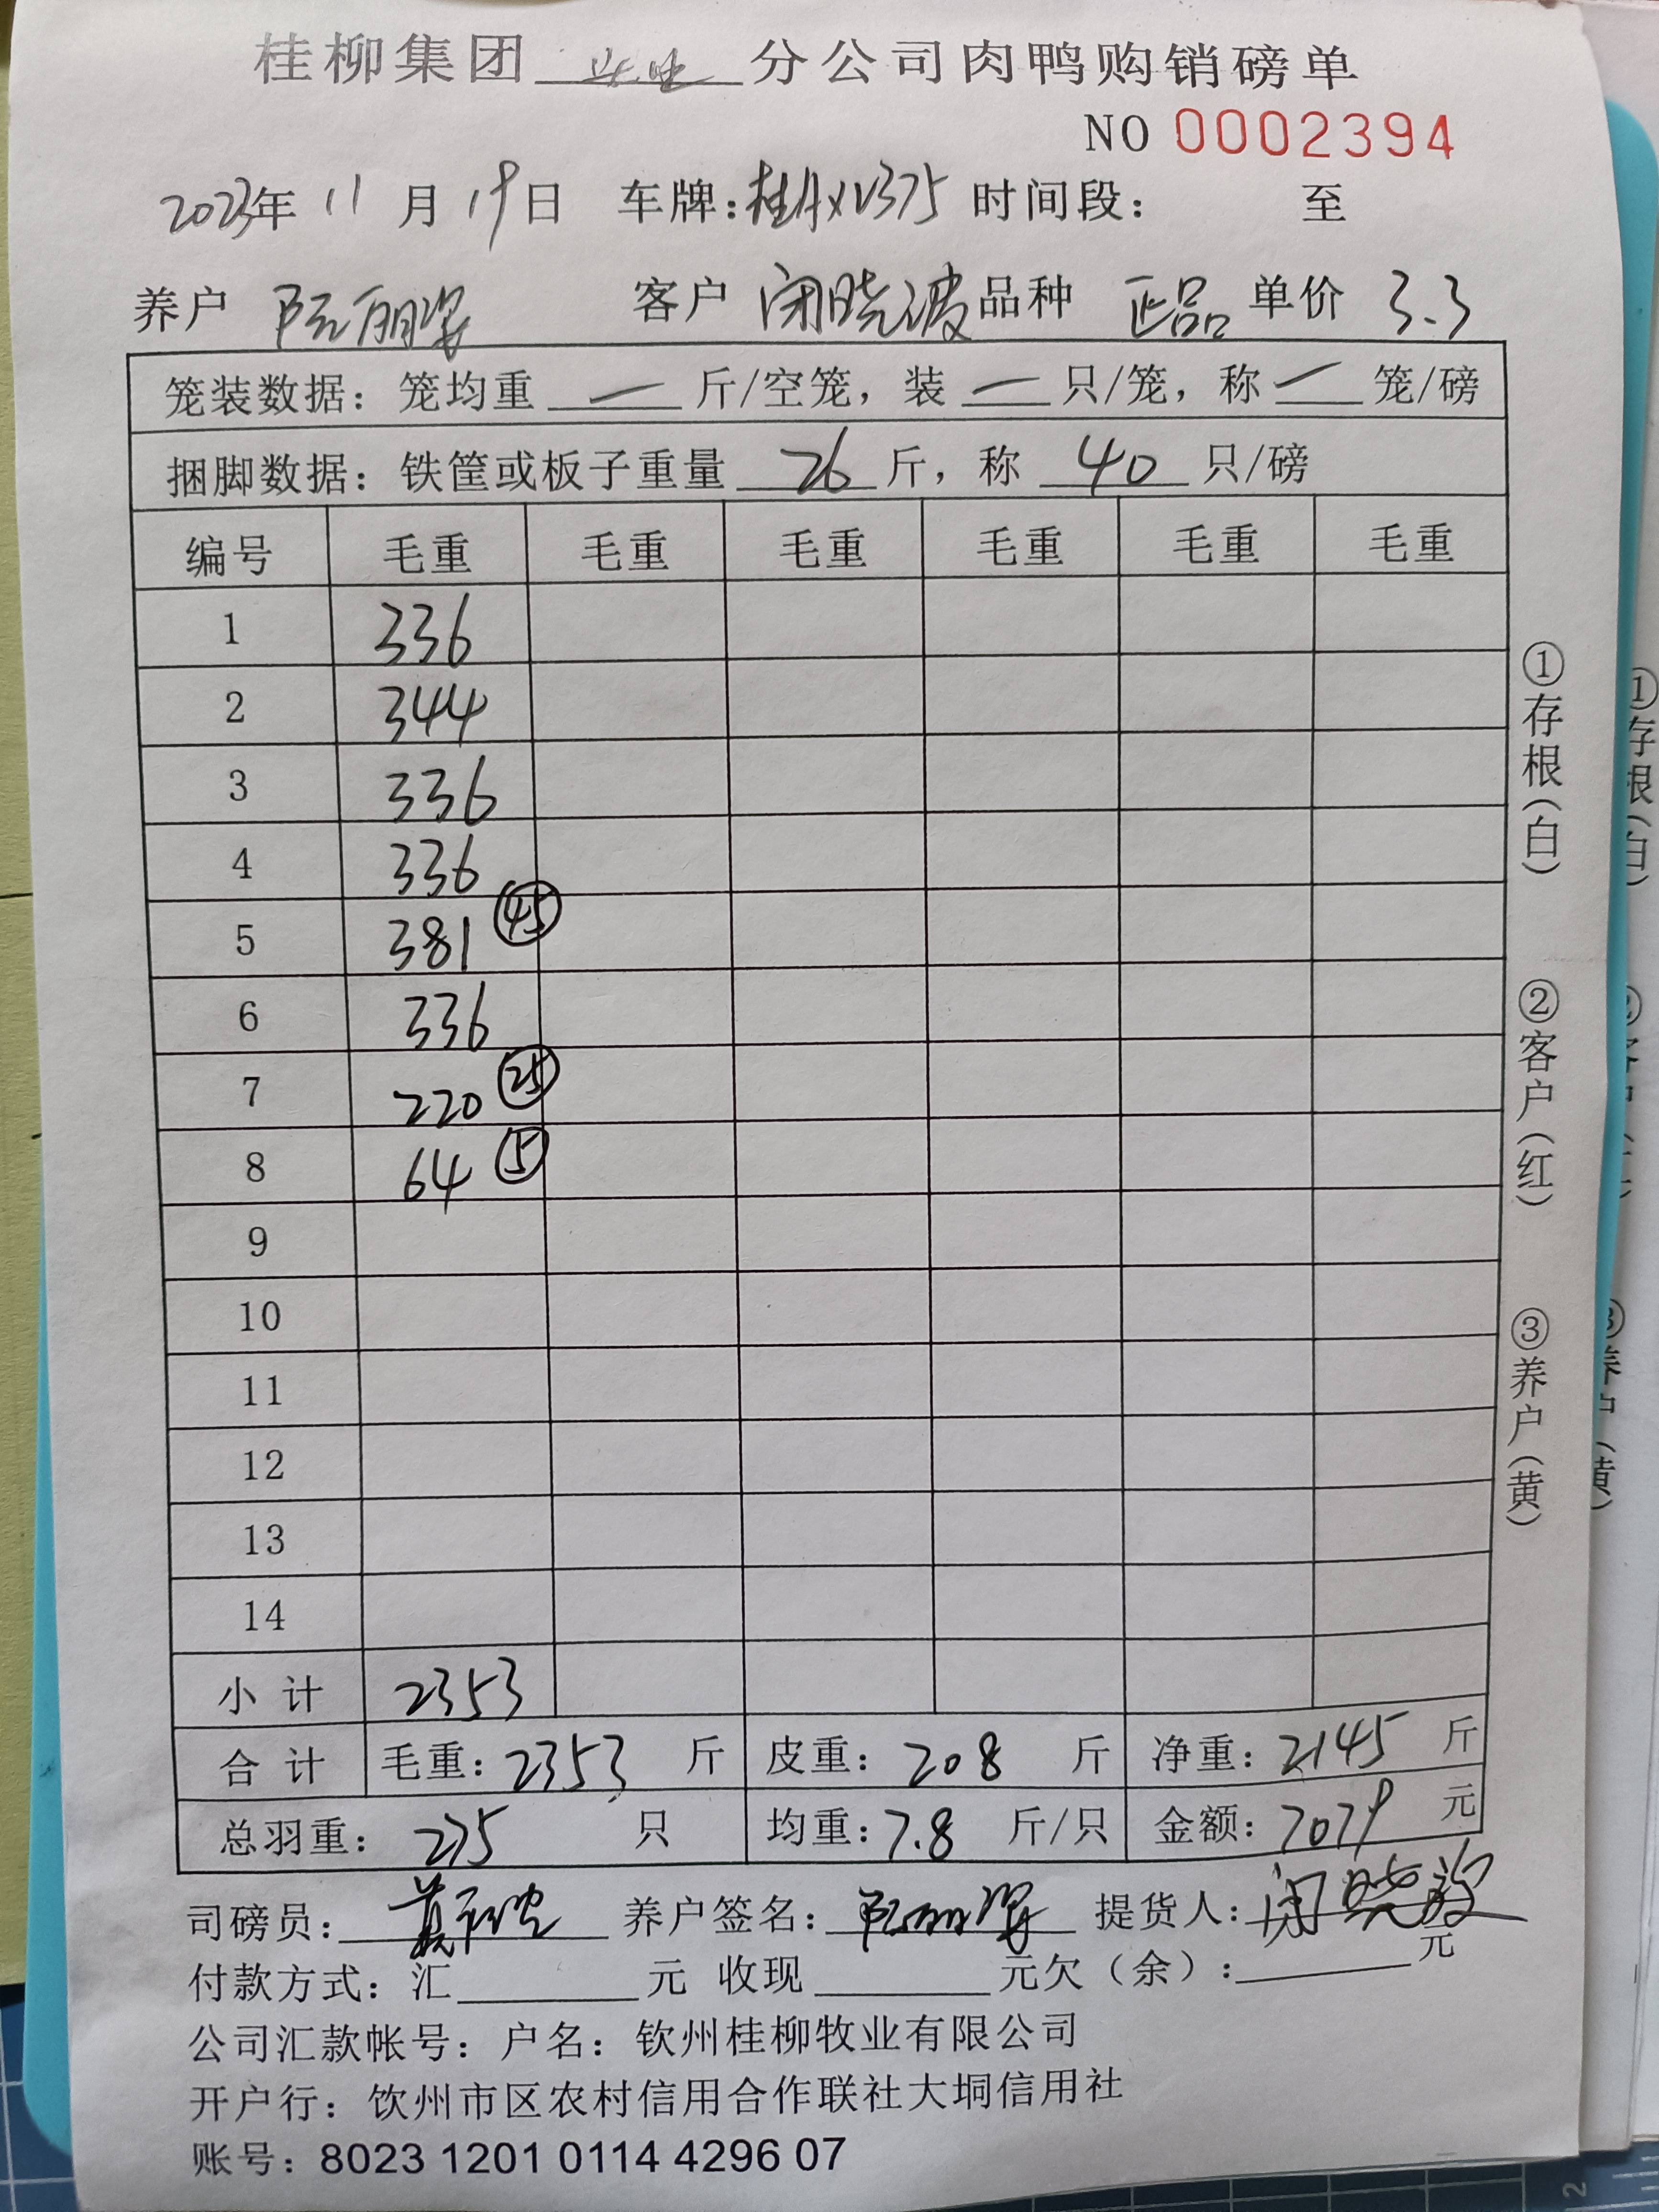 桂柳集团 分公司肉鸭购销磅单
NO 0002394
2023年 11 月 19日 车牌: 时间段: 至
养户 阮丽姿 客户 闭晓波 品种 正品 单价 3.3
笼装数据: 笼均重 一 斤/空笼, 装 一 只/笼, 称 一 笼/磅
捆脚数据: 铁筐或板子重量 26 斤, 称 40 只/磅
编号 毛重 毛重 毛重 毛重 毛重 毛重
1 336
2 344
3 336
4 336
5 381 45
6 336
7 220 25
8 64 5
9
10
11
12
13
14
小计 2353
合计 毛重: 2353 斤 皮重: 208 斤 净重: 2145 斤
总羽重: 275 只 均重: 7.8 斤/只 金额: 7079 元
司磅员: 养户签名: 阮丽姿 提货人: 闭晓波
付款方式: 汇 元 收现 元欠(余): 元
公司汇款帐号: 户名: 钦州桂柳牧业有限公司
开户行: 钦州市区农村信用合作联社大垌信用社
账号: 8023 1201 0114 4296 07
①存根(白)
②客户(红)
③养户(黄)